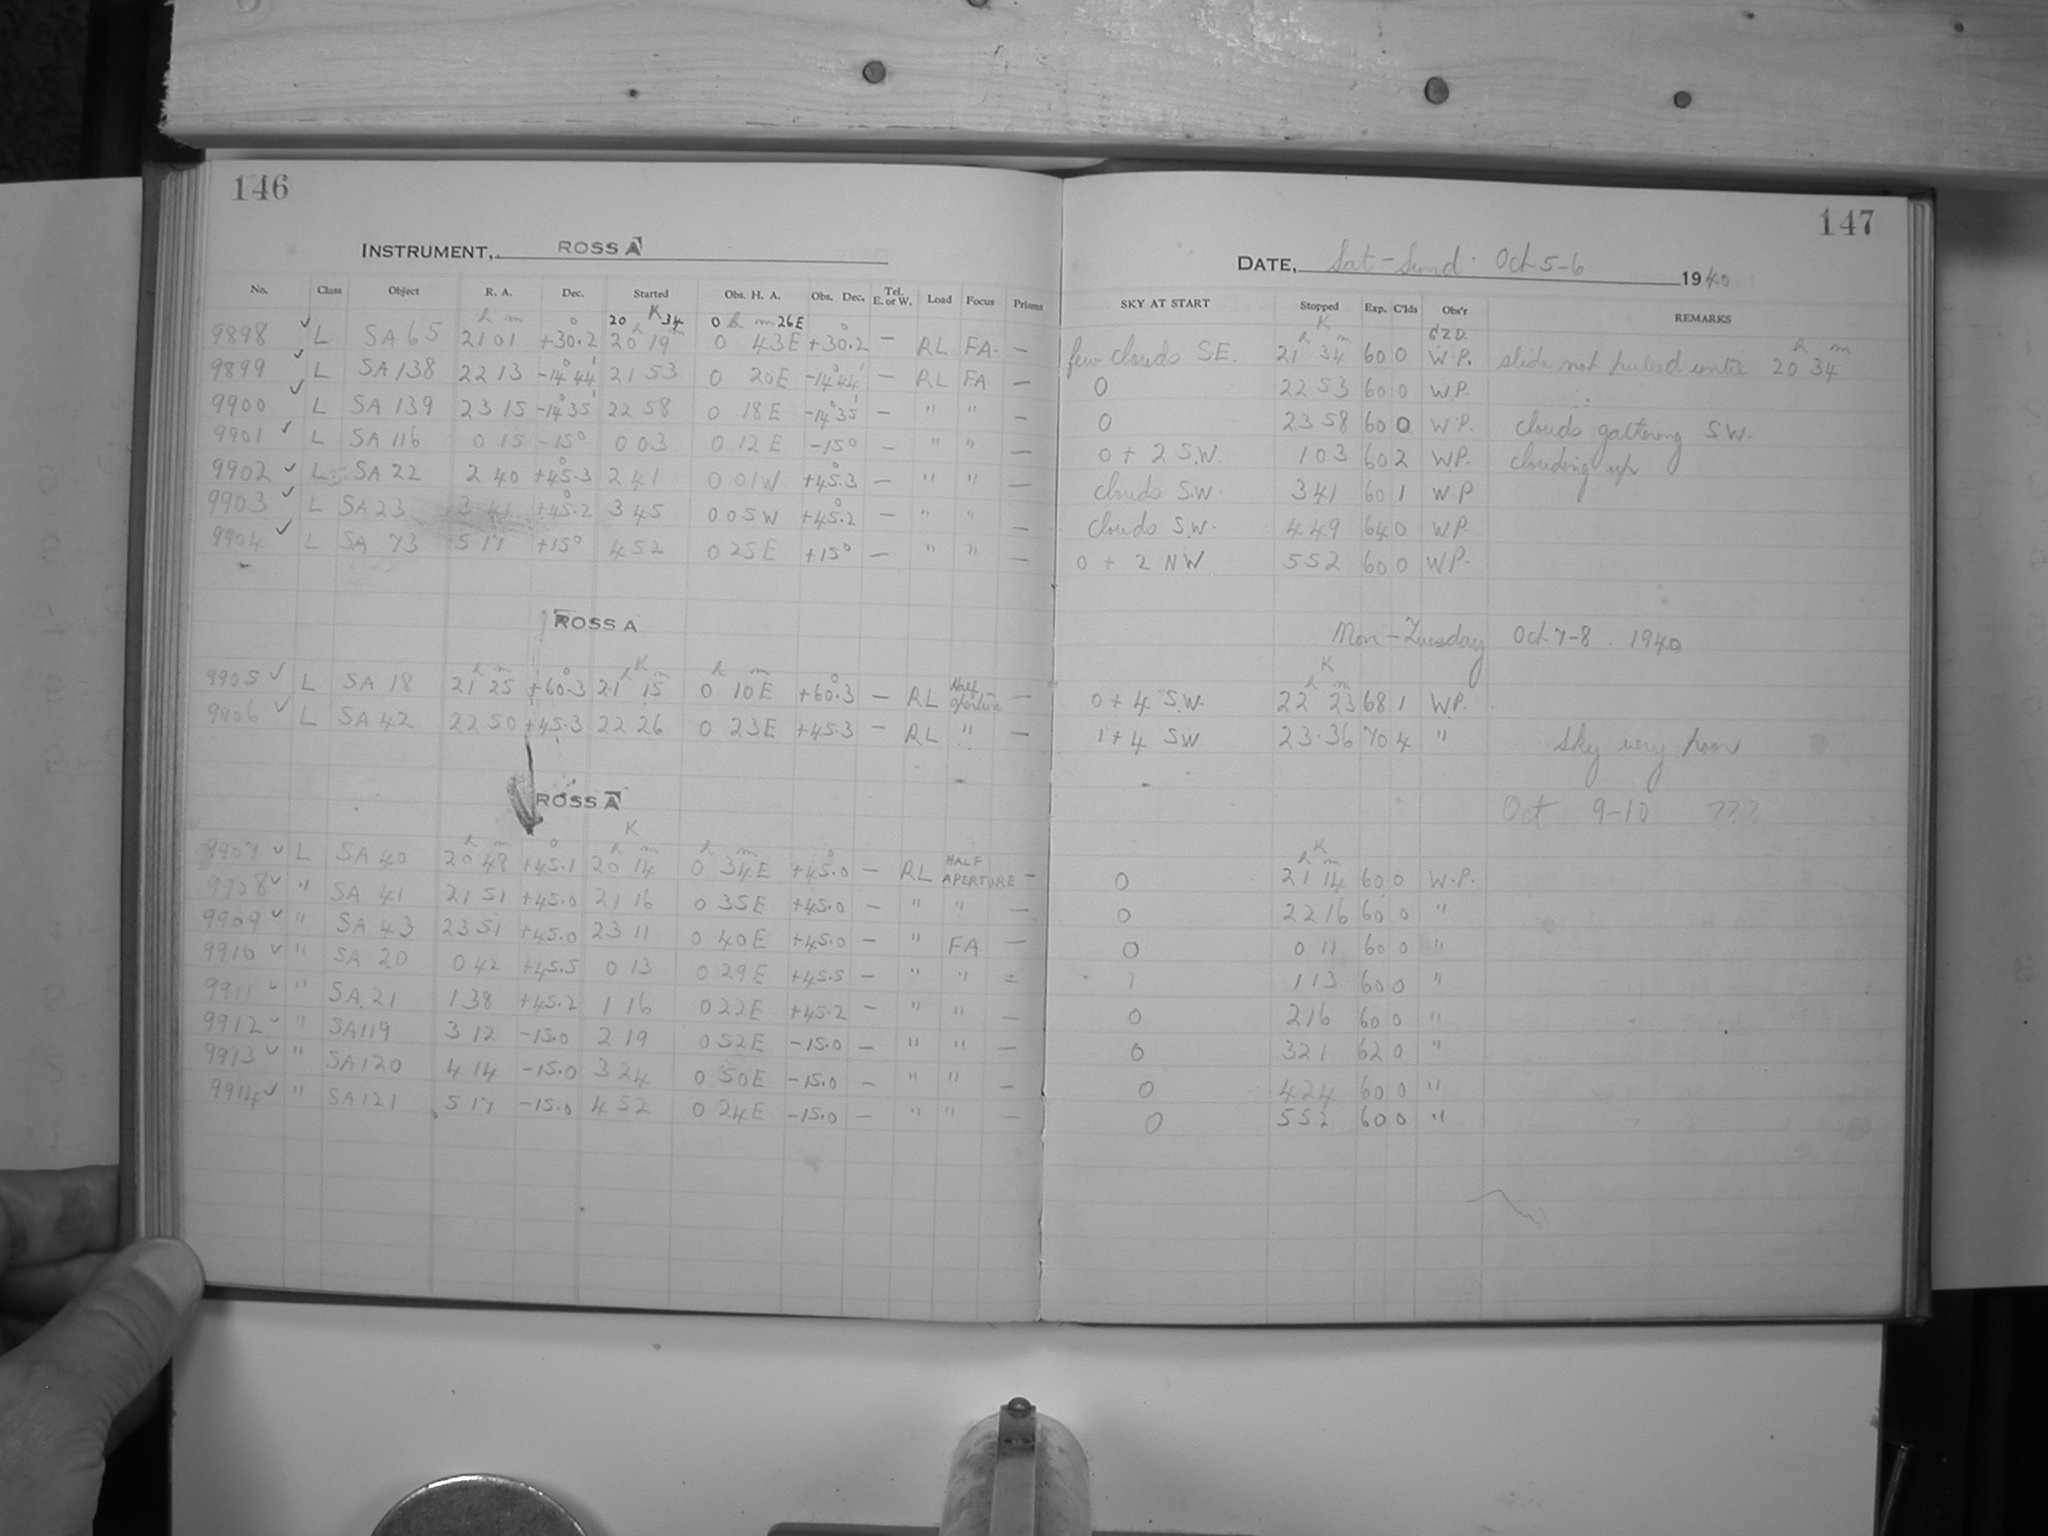 146
INSTRUMENT, ROSS A
No. Class Object R. A. Dec. Started Obs. H. A. Obs. Dec. Tel. E. or W. Load Focus Prisms
h m ° 20 K 34 0 h m 26E °
9898 ✓ L SA 65 21 01 +30.2 20 h 19 m 0 43E +30.2 — RL FA. —
9899 ✓ L SA 138 22 13 -14° 44' 21 53 0 20E -14° 44' — RL FA —
9900 ✓ L SA 139 23 15 -14° 35' 22 58 0 18E -14° 35' — " " —
9901 ✓ L SA 116 0 15 -15° 0 03 0 12E -15° — " " —
9902 ✓ L SA 22 2 40 +45.3 2 41 0 01W +45.3 — " " —
9903 ✓ L SA 23 3 41 +45.2 3 45 0 05W +45.2 — " " —
9904 ✓ L SA 73 5 17 +15° 4 52 0 25E +15° — " " —
ROSS A
h m ° h K m h m °
9905 ✓ L SA 18 21 25 +60.3 21 15 0 10E +60.3 — RL Half aperture —
9906 ✓ L SA 42 22 50 +45.3 22 26 0 23E +45.3 — RL " —
ROSS A
h m ° K h m h m °
9907 ✓ L SA 40 20 48 +45.1 20 14 0 34E +45.0 — RL HALF APERTURE —
9908 ✓ " SA 41 21 51 +45.0 21 16 0 35E +45.0 — " " —
9909 ✓ " SA 43 23 51 +45.0 23 11 0 40E +45.0 — " FA —
9910 ✓ " SA 20 0 42 +45.5 0 13 0 29E +45.5 — " " —
9911 ✓ " SA 21 1 38 +45.2 1 16 0 22E +45.2 — " " —
9912 ✓ " SA 119 3 12 -15.0 2 19 0 52E -15.0 — " " —
9913 ✓ " SA 120 4 14 -15.0 3 24 0 50E -15.0 — " " —
9914 ✓ " SA 121 5 17 -15.0 4 52 0 24E -15.0 — " " —
147
DATE, Sat - Sund. Oct 5-6 1940
SKY AT START Stopped Exp. C'lds Obs'r REMARKS
K
few clouds S.E. 21 h 34 m 60 0 W.P. slide not pulled until 20 h 34 m
0 22 53 60 0 W.P.
0 23 58 60 0 W.P. clouds gathering S W.
0 + 2 S.W. 1 03 60 2 W.P. clouding up
clouds S.W. 3 41 60 1 W.P
clouds S.W. 4 49 64 0 W.P.
0 + 2 NW 5 52 60 0 W.P.
Mon - Tuesday Oct 7-8. 1940
K
0 + 4 S.W. 22 h 23 m 68 1 W.P.
1 + 4 SW 23.36 70 4 " Sky very poor
Oct 9-10 ???
K
0 21 h 14 m 60 0 W.P.
0 22 16 60 0 "
0 0 11 60 0 "
1 1 13 60 0 "
0 2 16 60 0 "
0 3 21 62 0 "
0 4 24 60 0 "
0 5 52 60 0 "